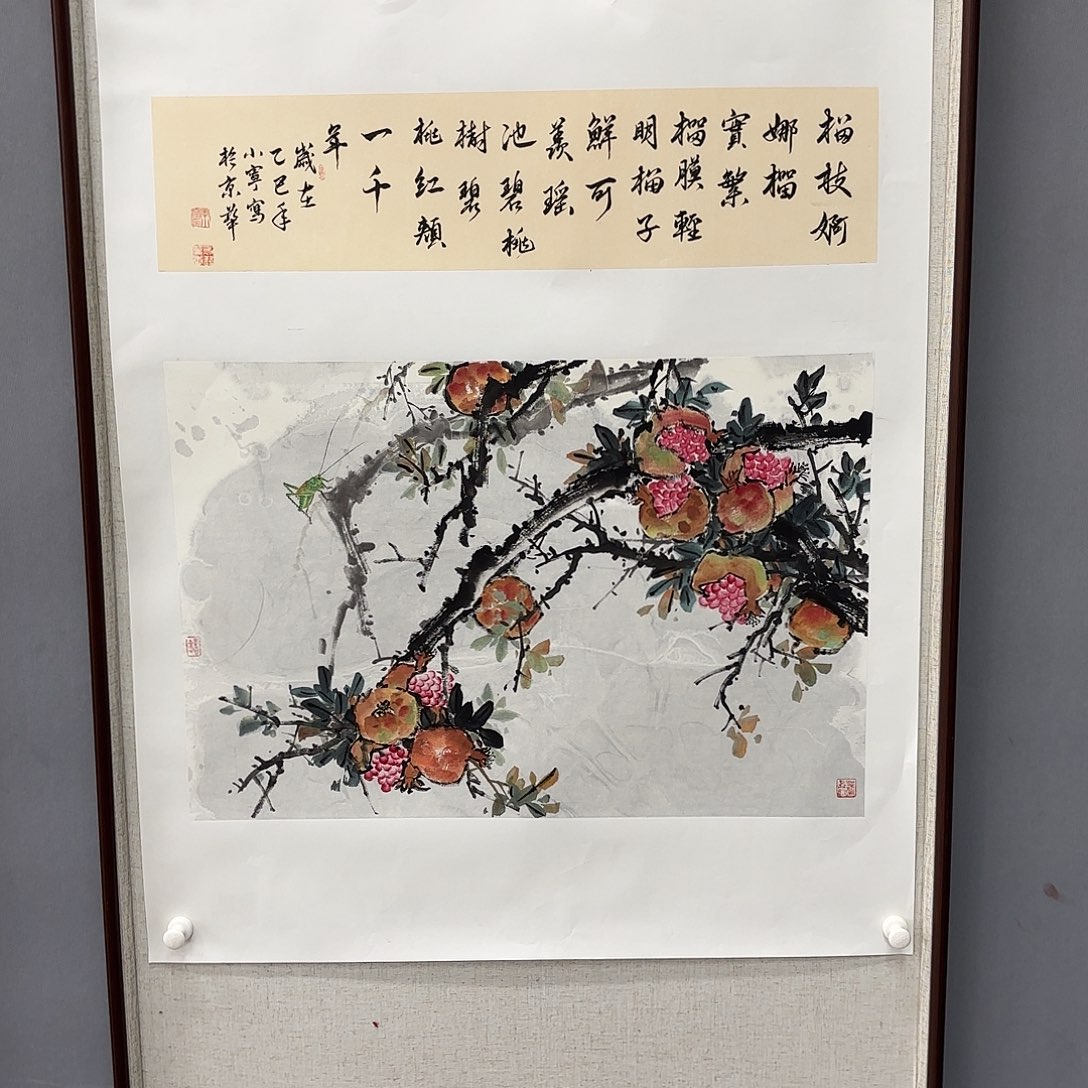 榴枝婀
娜榴
實繁
榴膜輕
明榴子
鮮可
羨瑤
池碧桃
樹碧
桃紅頰
一千
年
歲在
乙巳年
小寧寫
於京華